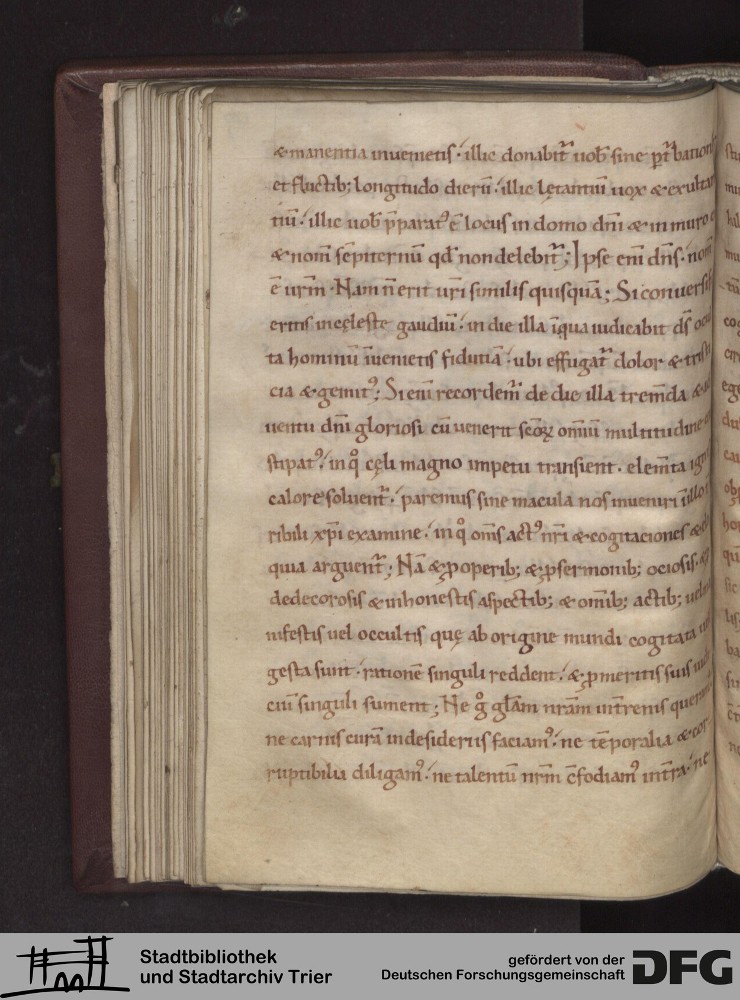 & manentia inuenietis · illic donabit̄ uob̄ sine ꝑt̄bation
et fluctib; longitudo dierū · illic lętantiū uox & exultan
tiū · illic uob̄ p̄parat᷒ ē locus in domo dn̄i & in muro
& nom̄ sēpiternū qđ non delebit̄; Ipse eni dn̄s · nom̄
ē urm̄ · Nam n̄ erit uri similis quisquā; Si conuersi
eritis in cęleste gaudiū · in die illa ī qua iudicabit dś ocul
ta hominū īuenietis fidutiā · ubi effugat̄ dolor & tristi
cia & gemit᷒; Si eni recordem̄ de die illa trem̄da & ad
uentu dn̄i gloriosi cū uenerit sc̄oꝝ omīū multitudine
stipat᷒ · in qͦ cęli magno impetu transient · elem̄ta igni
calore soluent̄ · paremus sine macula nos inueniri ī illo
ribili xp̄i examine · in qͦ om̄s act᷒ nr̄i & cogitaciones
quia arguent̄; Nā & ꝓ operib; & ꝓ sermonib; ociosis ·
dedecorosis & inhonestis aspectib; & om̄ib; actib;
nifestis uel occultis quę ab origine mundi cogitata
gesta sunt · rationē singuli reddent · & ꝓ meritis suis iudi
ciū singuli sument; Ne gͦ gl̄am nr̄am in t̄renis querant
ne carnis curā in desideriis faciam᷒ · ne tēporalia & cor
ruptibilia diligam᷒ · ne talentū nr̄m c̄fodiam᷒ in t̄ra · ne
Stadtbibliothek
und Stadtarchiv Trier
gefördert von der
Deutschen Forschungsgemeinschaft
DFG